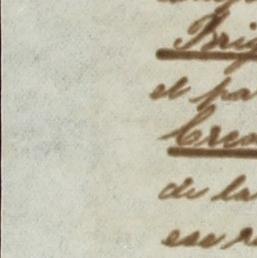 Brig
el pa
Crea
de la
ese r